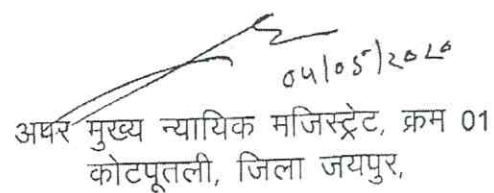 04/05/2020
अपर मुख्य न्यायिक मजिस्ट्रेट, क्रम 01
कोटपूतली, जिला जयपुर,